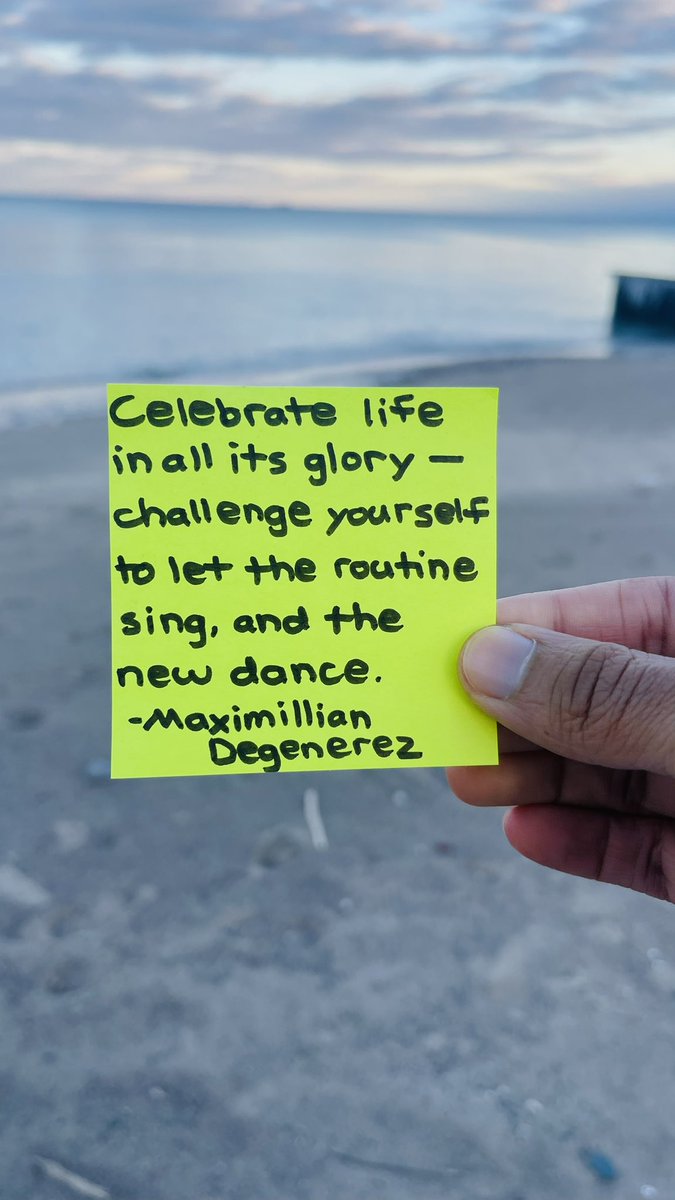 Celebrate life
in all its glory —
challenge yourself
to let the routine
sing, and the
new dance.
-Maximillian
Degenerez